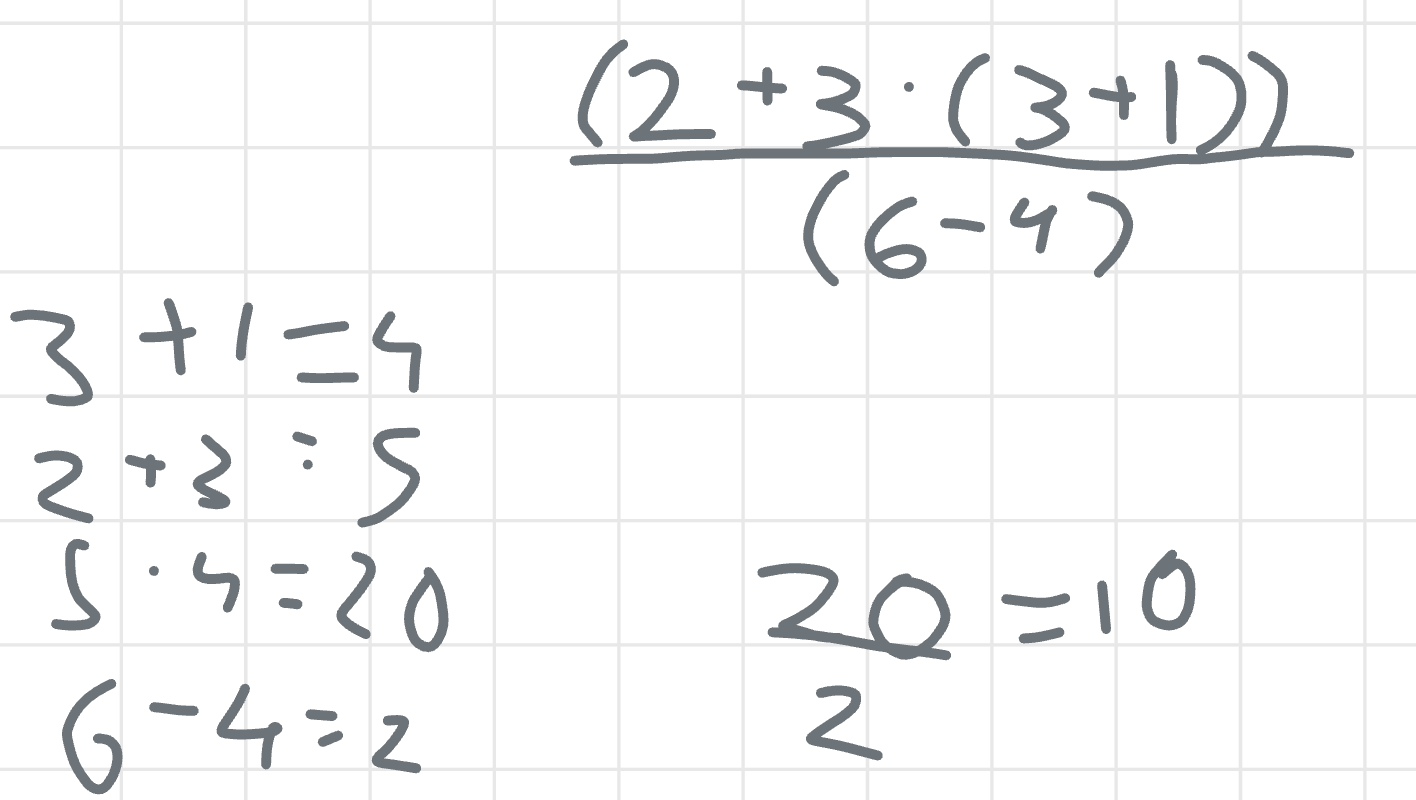 (2 + 3 · (3 + 1))
(6 - 4)
3 + 1 = 4
2 + 3 = 5
5 · 4 = 20
6 - 4 = 2
20 = 10
2